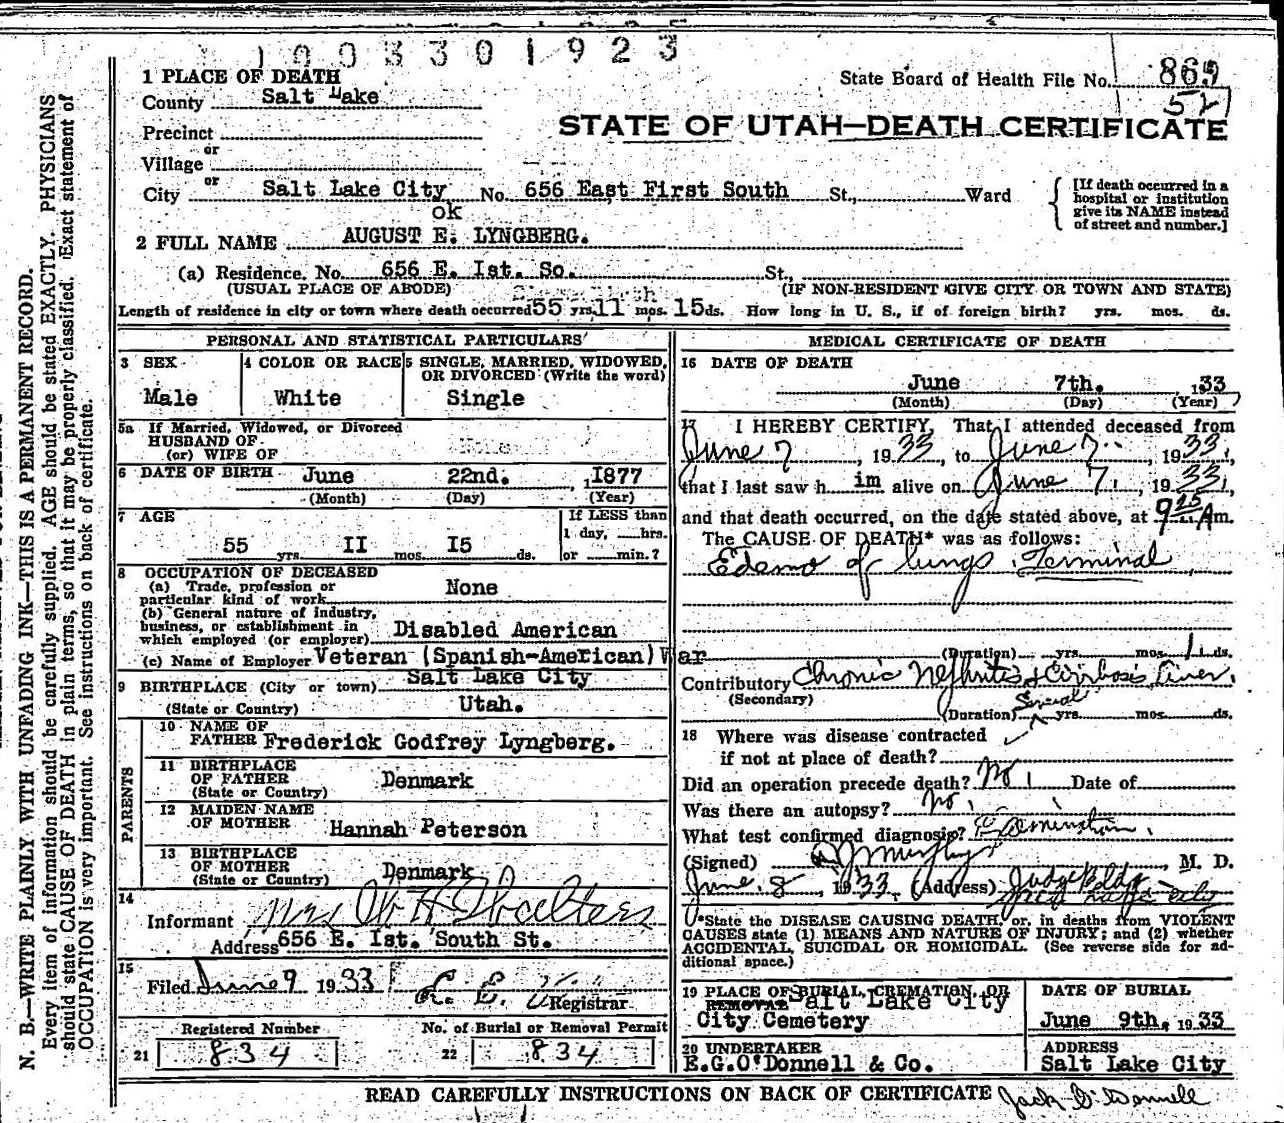 1003301923
1 PLACE OF DEATH
State Board of Health File No. 869
County Salt Lake
52
STATE OF UTAH—DEATH CERTIFICATE
Precinct
or
Village
or
City Salt Lake City No. 656 East First South St., Ward
[If death occurred in a hospital or institution give its NAME instead of street and number.]
ok
2 FULL NAME AUGUST E. LYNGBERG.
(a) Residence. No. 656 E. Ist. So. St.,
(USUAL PLACE OF ABODE) (IF NON-RESIDENT GIVE CITY OR TOWN AND STATE)
Length of residence in city or town where death occurred 55 yrs. 11 mos. 15 ds. How long in U. S., if of foreign birth? yrs. mos. ds.
PERSONAL AND STATISTICAL PARTICULARS
3 SEX 4 COLOR OR RACE 5 SINGLE, MARRIED, WIDOWED,
OR DIVORCED (Write the word)
Male White Single
5a If Married, Widowed, or Divorced
HUSBAND OF
(or) WIFE OF
6 DATE OF BIRTH June 22nd. , 1877
(Month) (Day) (Year)
7 AGE If LESS than
1 day, hrs.
55 yrs. II mos. I5 ds. or min.?
8 OCCUPATION OF DECEASED
(a) Trade, profession or
particular kind of work None
(b) General nature of industry,
business, or establishment in
which employed (or employer) Disabled American
(c) Name of Employer Veteran (Spanish-American) War
9 BIRTHPLACE (City or town) Salt Lake City
(State or Country) Utah.
PARENTS
10 NAME OF
FATHER Frederick Godfrey Lyngberg.
11 BIRTHPLACE
OF FATHER Denmark
(State or Country)
12 MAIDEN NAME
OF MOTHER Hannah Peterson
13 BIRTHPLACE
OF MOTHER
(State or Country) Denmark
14
Informant Mrs W H Walters
Address 656 E. Ist. South St.
15
Filed June 9 1933
Registrar
Registered Number No. of Burial or Removal Permit
21 834 22 834
MEDICAL CERTIFICATE OF DEATH
16 DATE OF DEATH
June 7th. , 1933
(Month) (Day) (Year)
17 I HEREBY CERTIFY, That I attended deceased from
June 7 , 1933, to June 7 , 1933,
that I last saw h im alive on June 7, , 1933,
and that death occurred, on the date stated above, at 9 15 A m.
The CAUSE OF DEATH* was as follows:
Edema of lungs Terminal
(Duration) yrs. mos. 1 ds.
Contributory Chronic Nephritis & Cirrhosis Liver.
(Secondary)
(Duration) Several yrs. mos. ds.
18 Where was disease contracted
if not at place of death?
Did an operation precede death? No Date of
Was there an autopsy? No.
What test confirmed diagnosis? Examination.
(Signed) Murphy , M. D.
June 8 , 1933 (Address) Judge Bldg
Salt Lake City
*State the DISEASE CAUSING DEATH, or, in deaths from VIOLENT
CAUSES state (1) MEANS AND NATURE OF INJURY; and (2) whether
ACCIDENTAL, SUICIDAL OR HOMICIDAL. (See reverse side for ad-
ditional space.)
19 PLACE OF BURIAL, CREMATION, OR DATE OF BURIAL
REMOVAL Salt Lake City
City Cemetery June 9th. 1933
20 UNDERTAKER ADDRESS
E.G.O'Donnell & Co. Salt Lake City
READ CAREFULLY INSTRUCTIONS ON BACK OF CERTIFICATE Jack O'Donnell
N. B.—WRITE PLAINLY WITH UNFADING INK—THIS IS A PERMANENT RECORD.
Every item of information should be carefully supplied. AGE should be stated EXACTLY. PHYSICIANS
should state CAUSE OF DEATH in plain terms, so that it may be properly classified. Exact statement of
OCCUPATION is very important. See instructions on back of certificate.